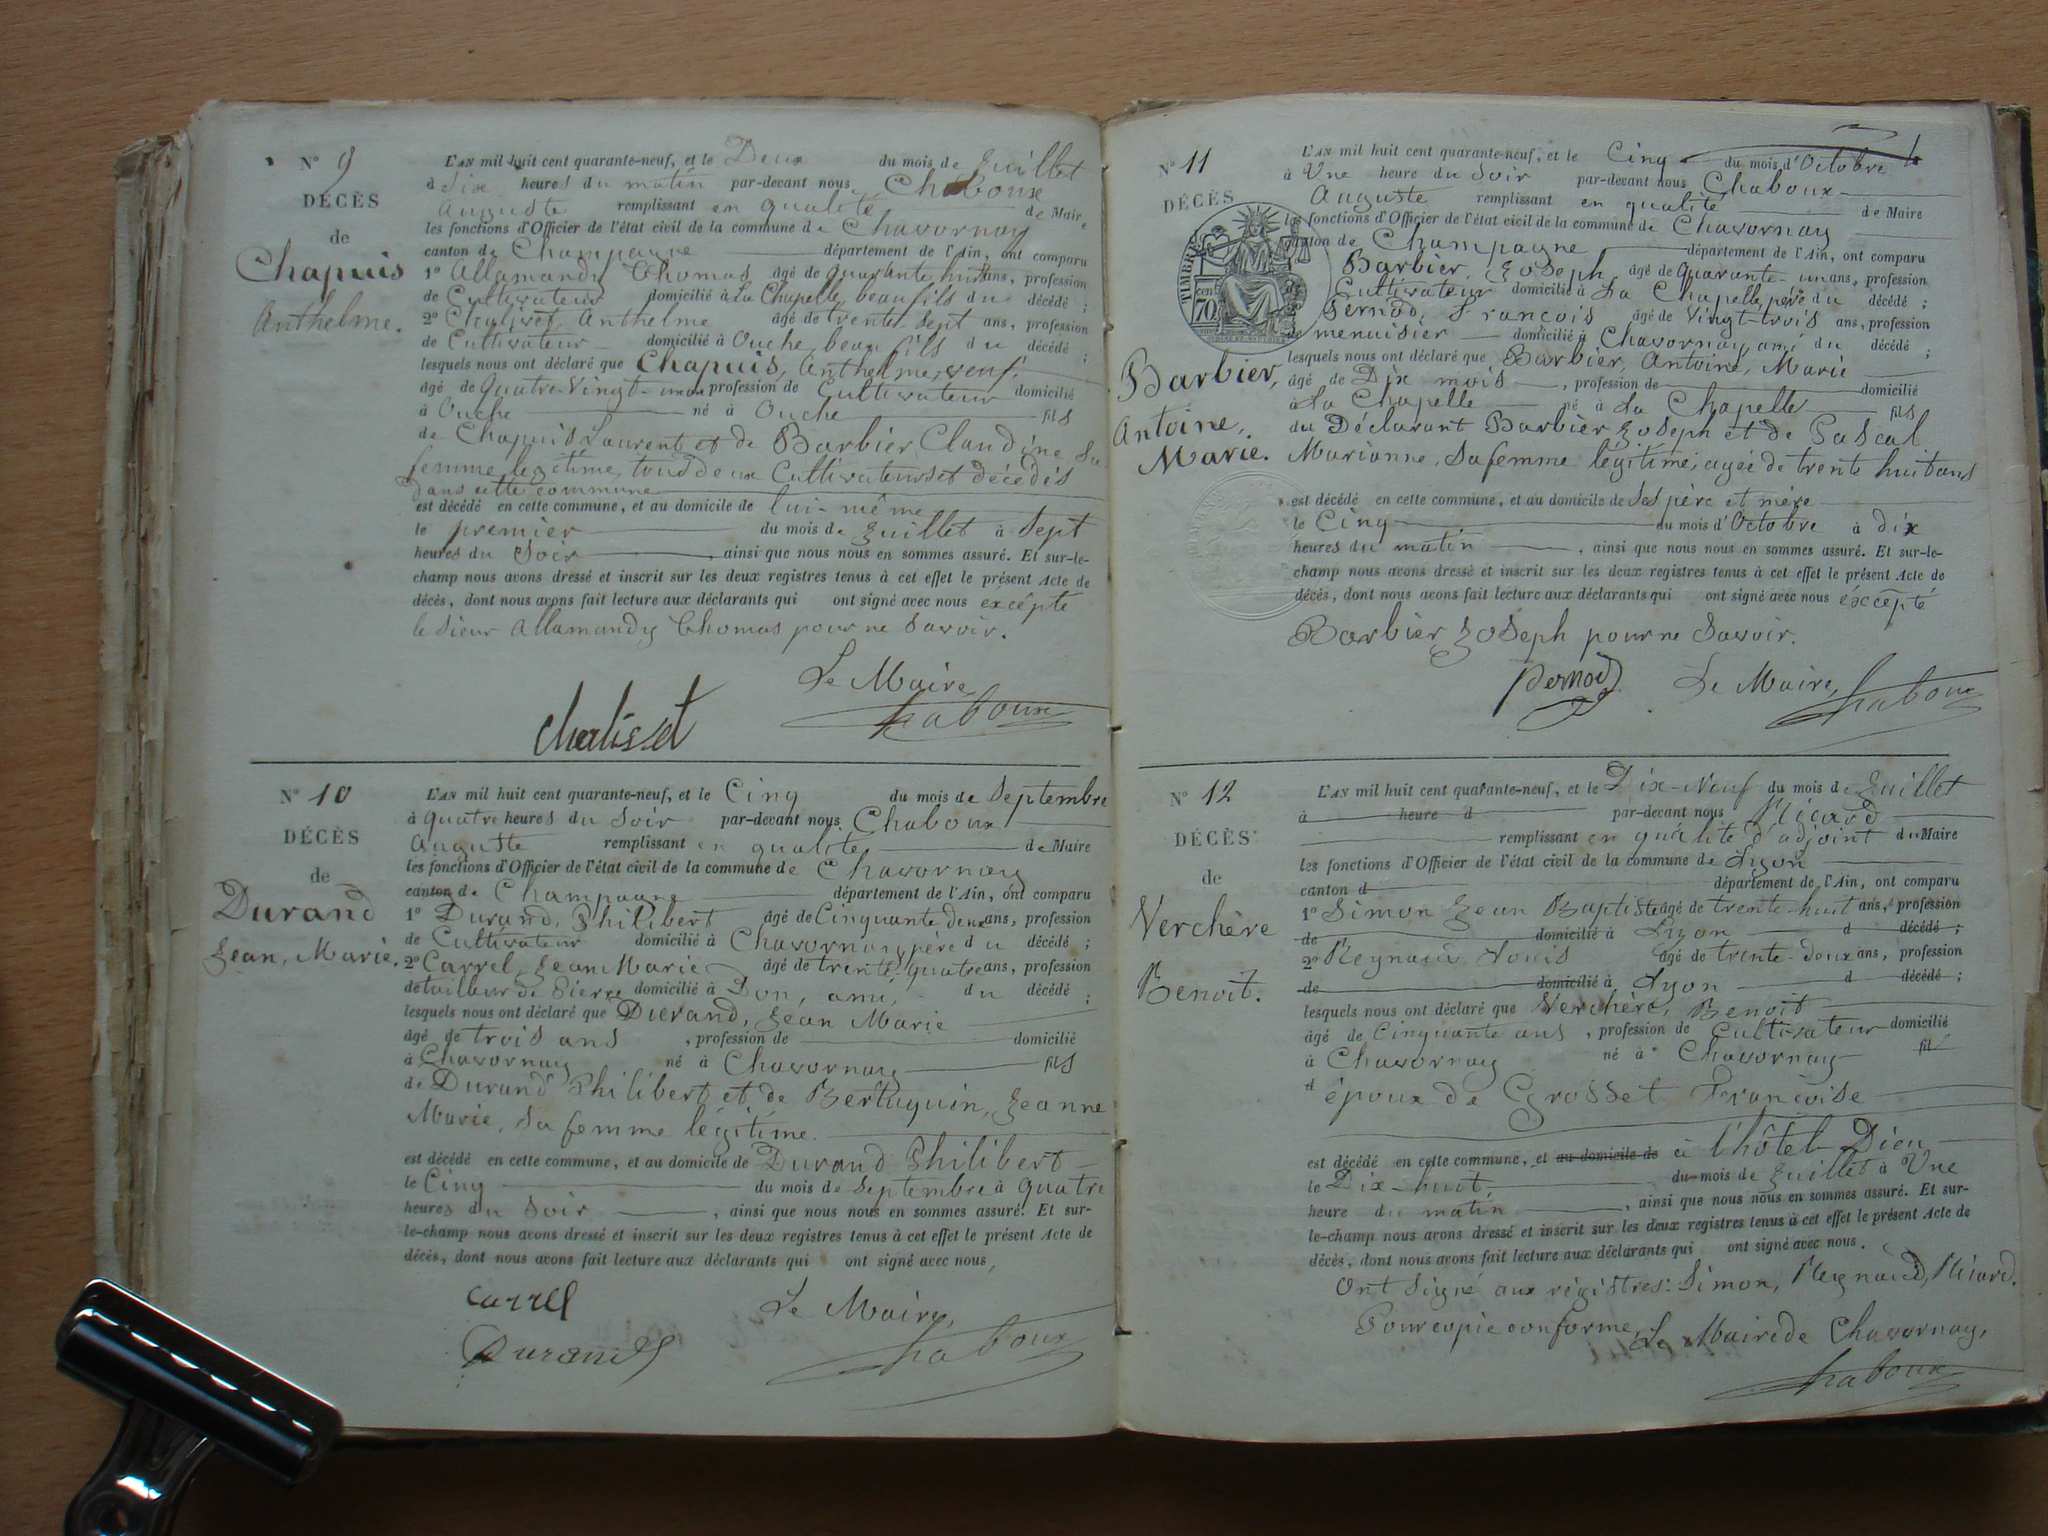 N° 9
DÉCÈS
de
Chapuis
Anthelme.
L'AN mil huit cent quarante-neuf, et le Deux du mois de Juillet
à Six heures du matin par-devant nous Chaboux
Auguste remplissant en qualité de Maire
les fonctions d'Officier de l'état civil de la commune de Chavornay
canton de Champagne département de l'Ain, ont comparu
1° Allamandy Thomas âgé de quarante huit ans, profession
de Cultivateur domicilié à La Chapelle, beau fils du décédé ;
2° Anthelme âgé de trente sept ans, profession
de Cultivateur domicilié à Ouche, beau fils du décédé ;
lesquels nous ont déclaré que Chapuis, Anthelme, veuf,
âgé de Quatre-Vingt- profession de Cultivateur domicilié
à Ouche né à Ouche fils
de Chapuis Laurent et de Barbier Claudine sa
femme légitime, tous deux Cultivateurs et décédés
dans cette commune
est décédé en cette commune, et au domicile de lui-même
le premier du mois de Juillet à Sept
heures du Soir, ainsi que nous nous en sommes assuré. Et sur-le-
champ nous avons dressé et inscrit sur les deux registres tenus à cet effet le présent Acte de
décès, dont nous avons fait lecture aux déclarants qui ont signé avec nous excépté
le Sieur Allamandy Thomas pour ne Savoir.
Le Maire,
Chaboux
N° 10
DÉCÈS
de
Durand
Jean, Marie.
L'AN mil huit cent quarante-neuf, et le Cinq du mois de Septembre
à quatre heures du Soir par-devant nous Chaboux
Auguste remplissant en qualité de Maire
les fonctions d'Officier de l'état civil de la commune de Chavornay
canton de Champagne département de l'Ain, ont comparu
1° Durand, Philibert âgé de Cinquante deux ans, profession
de Cultivateur domicilié à Chavornay, père du décédé ;
2° Carrel, Jean Marie âgé de trente quatre ans, profession
de tailleur de Pierre domicilié à Don, ami, du décédé ;
lesquels nous ont déclaré que Durand, Jean Marie
âgé de trois ans, profession de domicilié
à Chavornay né à Chavornay fils
de Durand Philibert et de Bertaquin, Jeanne
Marie, Sa femme légitime.
est décédé en cette commune, et au domicile de Durand Philibert
le Cinq du mois de Septembre à quatre
heures du Soir, ainsi que nous nous en sommes assuré. Et sur-
le-champ nous avons dressé et inscrit sur les deux registres tenus à cet effet le présent Acte de
décès, dont nous avons fait lecture aux déclarants qui ont signé avec nous,
Carrel
Le Maire,
Durand
Chaboux
N° 11
DÉCÈS
TIMBRE
70
Barbier,
Antoine,
Marie.
L'AN mil huit cent quarante-neuf, et le Cinq du mois d'Octobre
à Une heure du Soir par-devant nous Chaboux
Auguste remplissant en qualité de Maire
les fonctions d'Officier de l'état civil de la commune de Chavornay
canton de Champagne département de l'Ain, ont comparu
Barbier, Joseph âgé de quarante-un ans, profession
Cultivateur domicilié à La Chapelle, père du décédé ;
Pernod, François âgé de Vingt-trois ans, profession
de menuisier domicilié à Chavornay, ami du décédé ;
lesquels nous ont déclaré que Barbier, Antoine, Marie
âgé de Dix mois, profession de domicilié
à La Chapelle né à La Chapelle fils
du Déclarant Barbier Joseph et de Pascal
Marianne, Sa femme légitime, agée de trente huit ans
est décédé en cette commune, et au domicile de Ses père et mère
le Cinq du mois d'Octobre à dix
heures du matin, ainsi que nous nous en sommes assuré. Et sur-le-
champ nous avons dressé et inscrit sur les deux registres tenus à cet effet le présent Acte de
décès, dont nous avons fait lecture aux déclarants qui ont signé avec nous éxcepté
Barbier Joseph pour ne Savoir.
Pernod
Le Maire,
Chaboux
N° 12
DÉCÈS
de
Verchère
Benoit.
L'AN mil huit cent quarante-neuf, et le Dix-Neuf du mois de Juillet
à heure d par-devant nous
remplissant en qualité d'adjoint du Maire
les fonctions d'Officier de l'état civil de la commune de Lyon
canton d département de l'Ain, ont comparu
1° Simon Jean Baptiste âgé de trente-huit ans, profession
de domicilié à Lyon d décédé ;
2° Reynaud Louis âgé de trente-deux ans, profession
de domicilié à Lyon d décédé ;
lesquels nous ont déclaré que Verchère, Benoit
âgé de Cinquante ans, profession de Cultivateur domicilié
à Chavornay né à Chavornay fil
d époux de Grosset Françoise
est décédé en cette commune, et au domicile de à l'hôtel-Dieu
le Dix-huit, du mois de Juillet à Une
heure du matin, ainsi que nous nous en sommes assuré. Et sur-
le-champ nous avons dressé et inscrit sur les deux registres tenus à cet effet le présent Acte de
décès, dont nous avons fait lecture aux déclarants qui ont signé avec nous.
Ont Signé aux régistres: Simon, Reynaud,
Pour copie conforme, Le Maire de Chavornay,
Chaboux